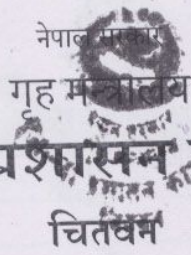 नेपाल सरकार
गृह मन्त्रालय
प्रशासन
चितवन